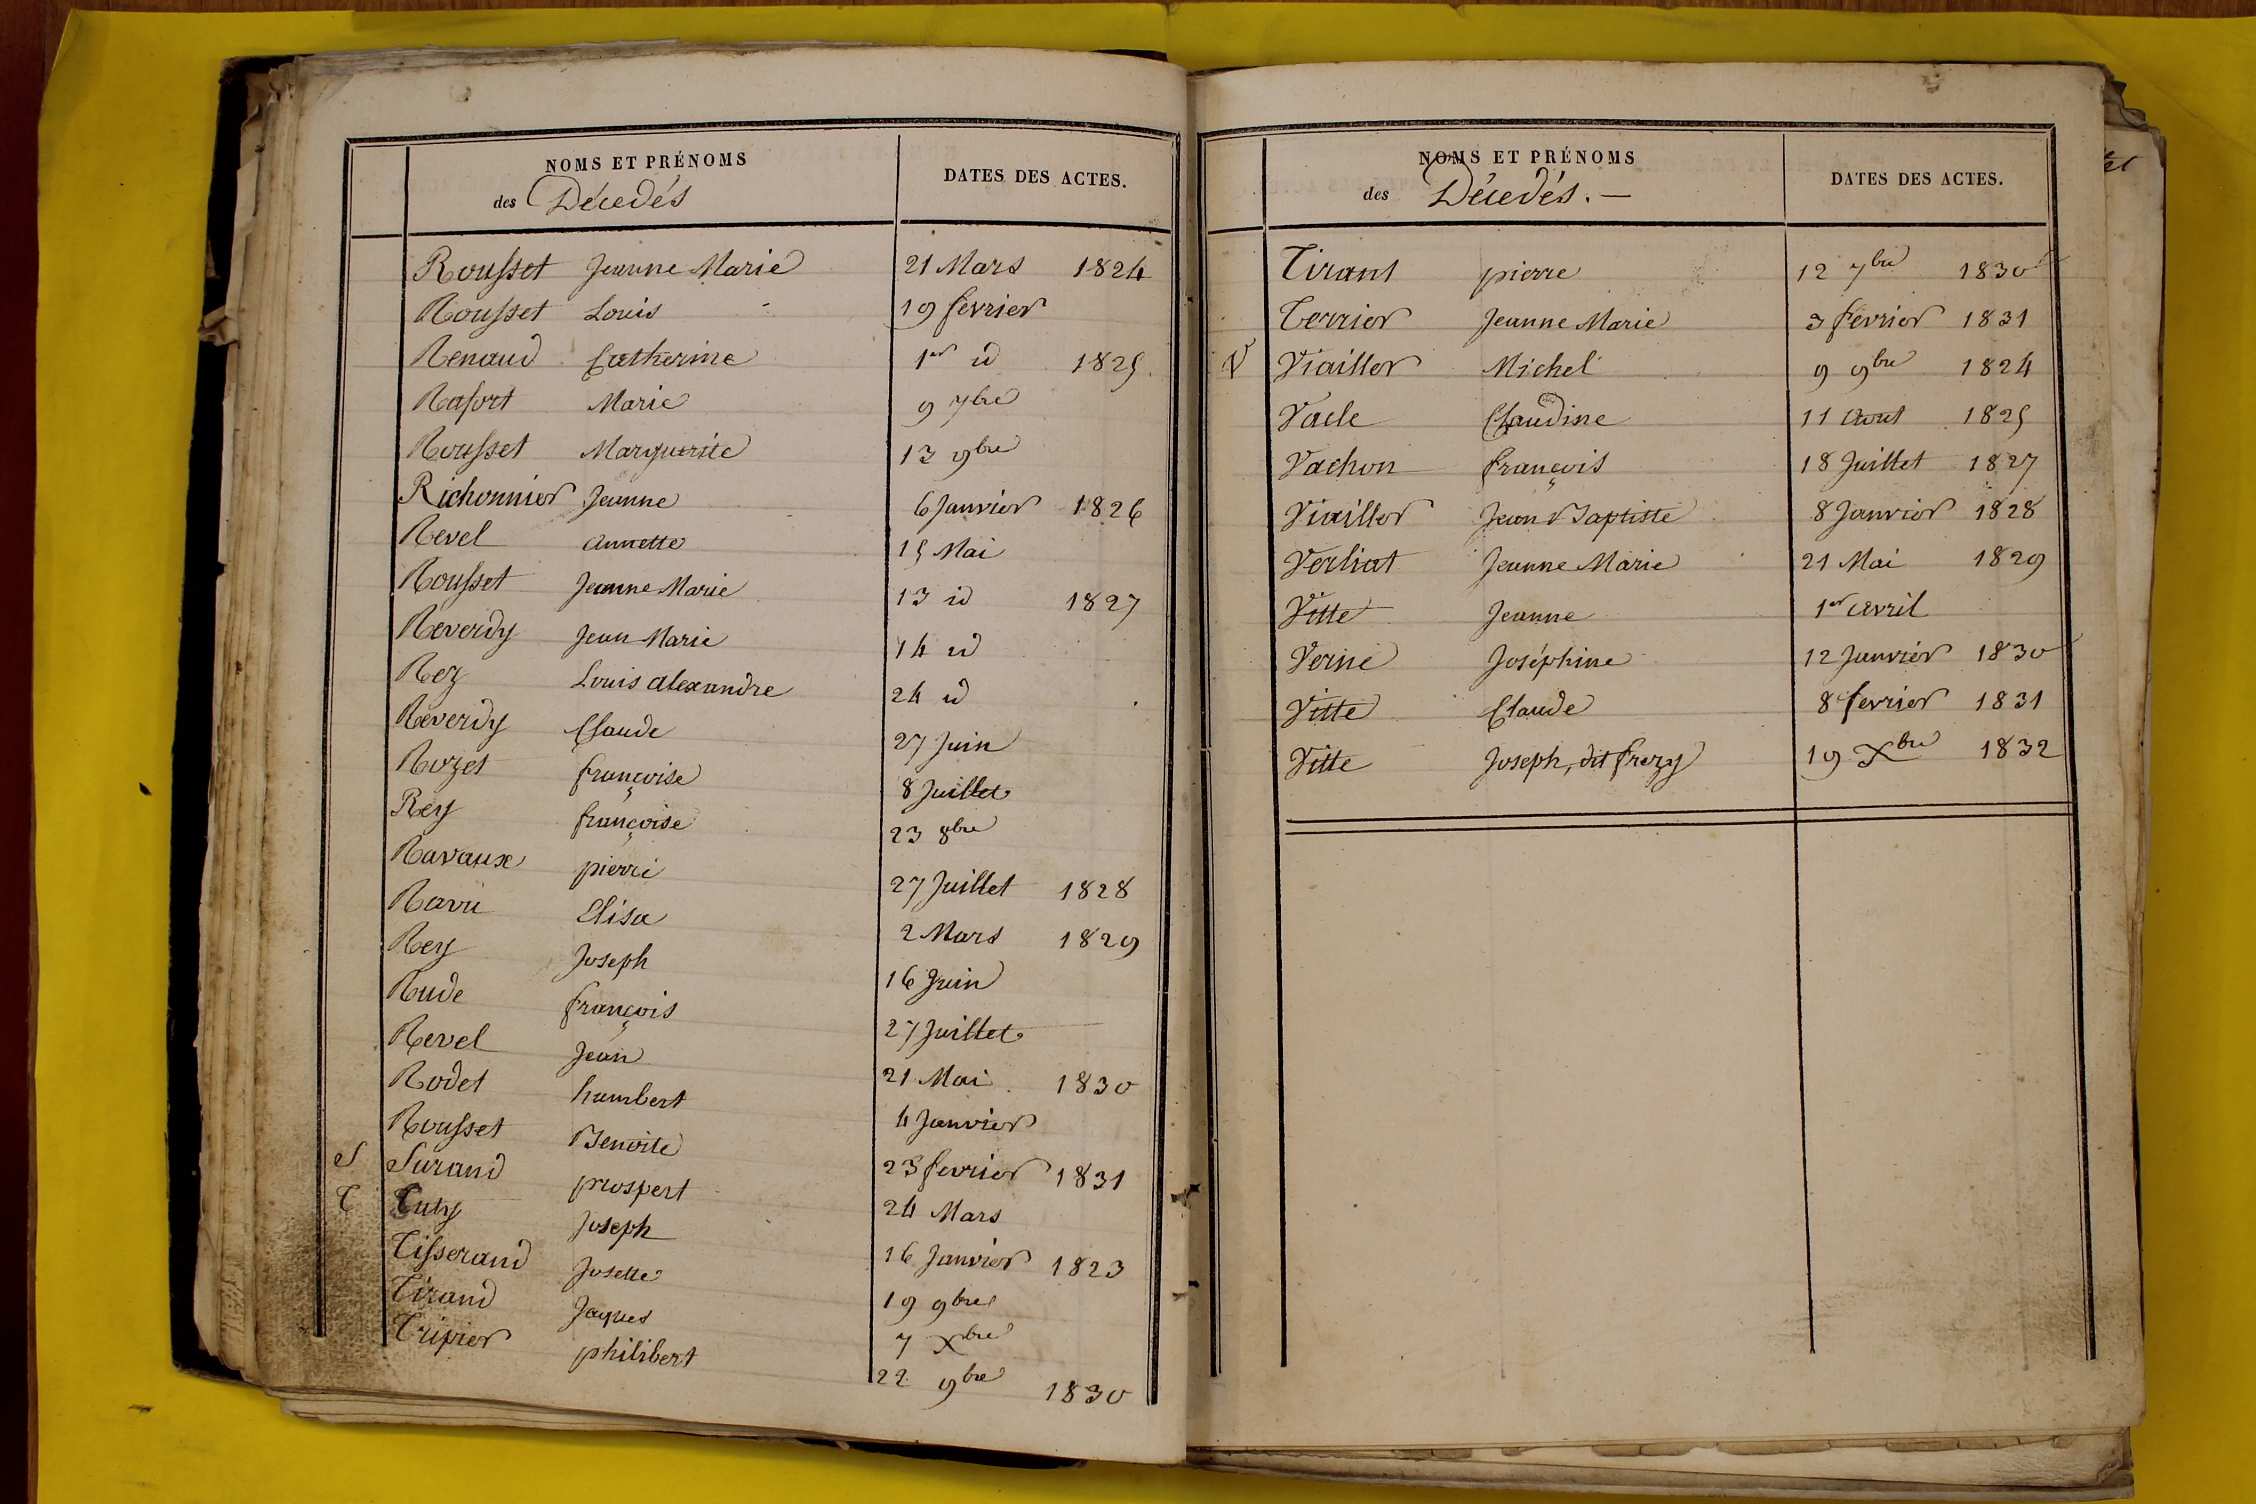 NOMS ET PRÉNOMS
des Décedés
DATES DES ACTES.
Rousset Jeanne Marie 21 Mars 1824
Rousset Louis 19 fevrier
Renaud Catherine 1er id 1825
Rafort Marie 9 7bre
Rousset Marguerite 13 9bre
Richonnier Jeanne 6 Janvier 1826
Revel annette 15 Mai
Rousset Jeanne Marie 13 id 1827
Reverdy Jean Marie 14 id
Rey Louis alexandre 24 id
Reverdy Claude 27 Juin
Rozet françoise 8 Juillet
Rey françoise 23 8bre
Ravaux pierre 27 Juillet 1828
Ravu Elisa 2 Mars 1829
Rey Joseph 16 Juin
Rude françois 27 Juillet
Revel Jean 21 Mai 1830
Rodet humbert 4 Janvier
Rousset Benoite 23 fevrier 1831
S Surand prospert 24 Mars
T Tuty Joseph 16 Janvier 1823
Tisserand Josette 19 9bre
Tirand Jaques 7 Xbre
Tripier philibert 22 9bre 1830
NOMS ET PRÉNOMS
des Décedés. —
DATES DES ACTES.
Tirant pierre 12 7bre 1830
Terrier Jeanne Marie 3 fevrier 1831
V Viailler Michel 9 9bre 1824
Vacle Claudine 11 aout 1825
Vachon françois 18 Juillet 1827
Viailler Jean Baptiste 8 Janvier 1828
Verliat Jeanne Marie 21 Mai 1829
Vitte Jeanne 1er avril
Verne Joséphine 12 Janvier 1830
Vitte Claude 8 fevrier 1831
Vitte Joseph, dit frezy 19 Xbre 1832